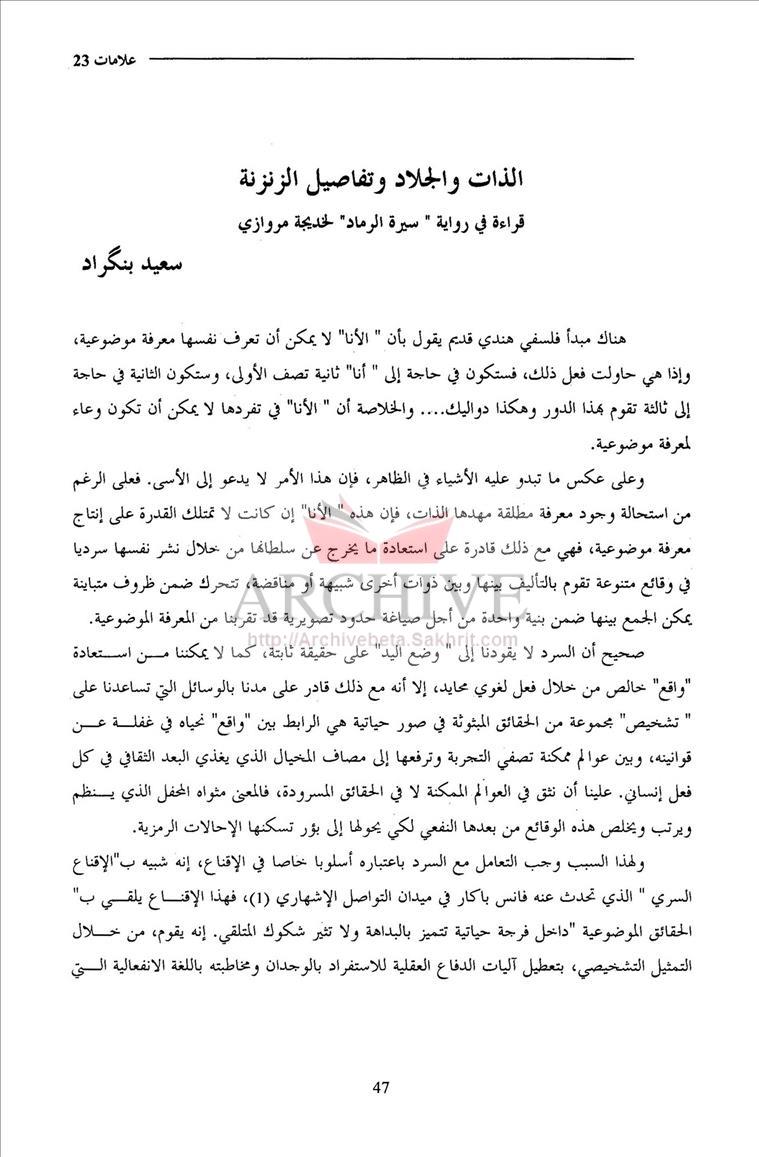 علامات 23
الذات والجلاد وتفاصيل الزنزنة
قراءة في رواية " سيرة الرماد" لخديجة مروازي
سعيد بنگراد
هناك مبدأ فلسفي هندي قديم يقول بأن " الأنا" لا يمكن أن تعرف نفسها معرفة موضوعية،
وإذا هي حاولت فعل ذلك، فستكون في حاجة إلى " أنا" ثانية تصف الأولى، وستكون الثانية في حاجة
إلى ثالثة تقوم بهذا الدور وهكذا دواليك.... والخلاصة أن " الأنا" في تفردها لا يمكن أن تكون وعاء
لمعرفة موضوعية.
وعلى عكس ما تبدو عليه الأشياء في الظاهر، فإن هذا الأمر لا يدعو إلى الأسى. فعلى الرغم
من استحالة وجود معرفة مطلقة مهدها الذات، فإن هذه " الأنا" إن كانت لا تمتلك القدرة على إنتاج
معرفة موضوعية، فهي مع ذلك قادرة على استعادة ما يخرج عن سلطاتها من خلال نشر نفسها سرديا
في وقائع متنوعة تقوم بالتأليف بينها وبين ذوات أخرى شبيهة أو مناقضة، تتحرك ضمن ظروف متباينة
ARCHIVE
يمكن الجمع بينها ضمن بنية واحدة من أجل صياغة حدود تصويرية قد تقربنا من المعرفة الموضوعية.
http://Archivebeta.Sakhrit.com
صحيح أن السرد لا يقودنا إلى " وضع اليد" على حقيقة ثابتة، كما لا يمكننا مـن اسـتعادة
"واقع" خالص من خلال فعل لغوي محايد، إلا أنه مع ذلك قادر على مدنا بالوسائل التي تساعدنا على
" تشخيص" مجموعة من الحقائق المبثوثة في صور حياتية هي الرابط بين "واقع" نحياه في غفلـة عـن
قوانينه، وبين عوالم ممكنة تصفي التجربة وترفعها إلى مصاف المخيال الذي يغذي البعد الثقافي في كل
فعل إنساني. علينا أن نثق في العوالم الممكنة لا في الحقائق المسرودة، فالمعنى مثواه المحفل الذي يـنظم
ويرتب ويخلص هذه الوقائع من بعدها النفعي لكي يحولها إلى بؤر تسكنها الإحالات الرمزية.
ولهذا السبب وجب التعامل مع السرد باعتباره أسلوبا خاصا في الإقناع، إنه شبيه ب"الإقناع
السري " الذي تحدث عنه فانس باكار في ميدان التواصل الإشهاري (1)، فهذا الإقنـاع يلقـي ب"
الحقائق الموضوعية "داخل فرجة حياتية تتميز بالبداهة ولا تثير شكوك المتلقي. إنه يقوم، من خـلال
التمثيل التشخيصي، بتعطيل آليات الدفاع العقلية للاستفراد بالوجدان ومخاطبته باللغة الانفعالية الـتي
47